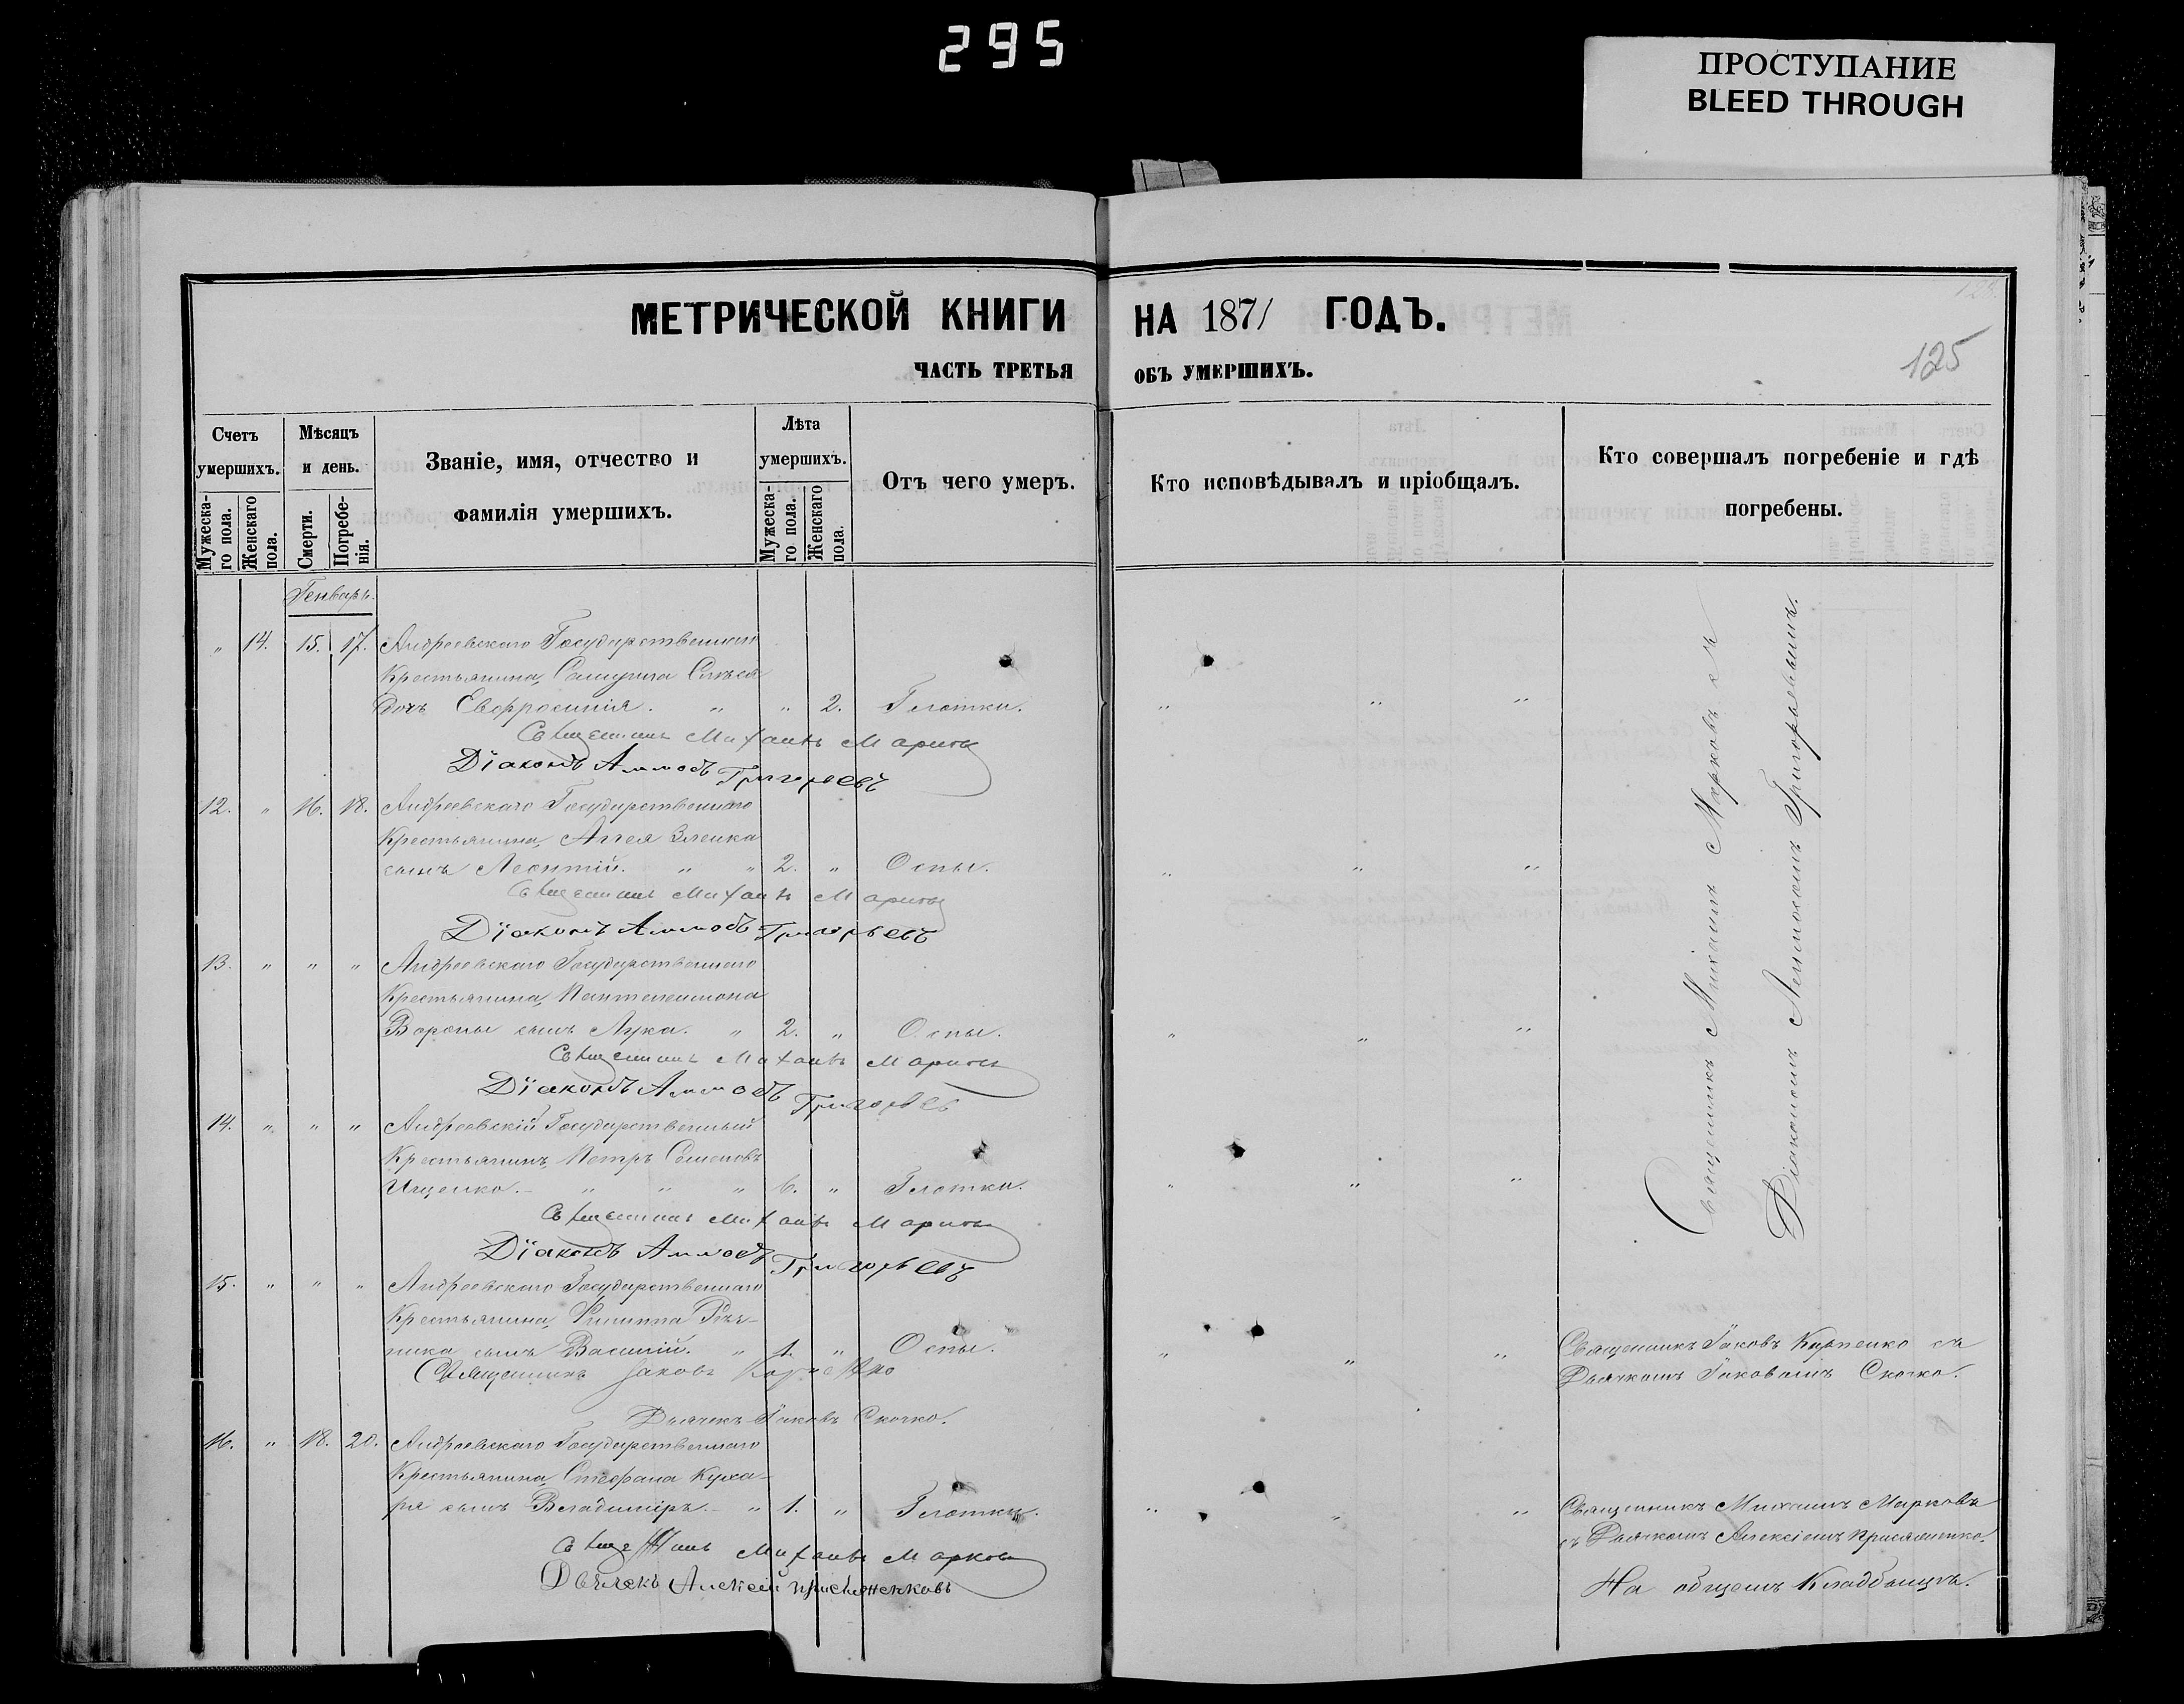 295
ПРОСТУПАНИЕ
BLEED THROUGH
МЕТРИЧЕСКОЙ КНИГИ НА 1871 ГОДЪ.
125
ЧАСТЬ ТРЕТЬЯ ОБЪ УМЕРШИХЪ.
Счетъ умершихъ.
Мужеска-го пола.
Женскаго пола.
Мѣсяцъ и день.
Смерти.
Погребе-нія.
Званіе, имя, отчество и фамилія умершихъ.
Лѣта умершихъ.
Мужеска-го пола.
Женскаго пола.
Отъ чего умеръ.
Кто исповѣдывалъ и пріобщалъ.
Кто совершалъ погребеніе и гдѣ погребены.
Генварь.
" 14. 15. 17. Андреевскаго Государственнаго
Крестьянина,
дочь Евфросинія. " " 2. Глотки. " " "
Священникъ Михаилъ Марковъ
Діаконъ Григорьевъ
12. " 16. 18. Андреевскаго Государственнаго
Крестьянина, Зленка
сынъ Леонтій. " " 2. " Оспы. " " "
Священникъ Михаилъ Марковъ
Діаконъ Григорьевъ
13. " " " Андреевскаго Государственнаго
Крестьянина, Пантелеимона
Вороны сынъ Лука. " 2. " Оспы. " " "
Священникъ Михаилъ Марковъ
Діаконъ Григорьевъ
14. " " " Андреевскій Государственный
Крестьянинъ, Петръ Семеновъ
Ищенко. " " " 6. " Глотки. " " "
Священникъ Михаилъ Марковъ
Діаконъ Григорьевъ
Священникъ Михаилъ Марковъ съ
Діакономъ Григорьевымъ.
15. " " " Андреевскаго Государственнаго
Крестьянина, Филиппа Рѣз-
ника сынъ Василій. " 1. " Оспы. " " " Священникъ Іаковъ Карпенко съ
Дьячкомъ Іаковомъ Скочко.
Священникъ Іаковъ Карпенко
Дьячекъ Іаковъ Скочко.
16. " 18. 20. Андреевскаго Государственнаго
Крестьянина Стефана Куха-
ря сынъ Владиміръ. " 1. " Глотки. " " " Священникъ Михаилъ Марковъ
съ Дьячкомъ Алексіемъ Присяженко.
Священникъ Михаилъ Марковъ
Дьячекъ Алексій Присяженковъ
На общемъ Кладбищѣ.